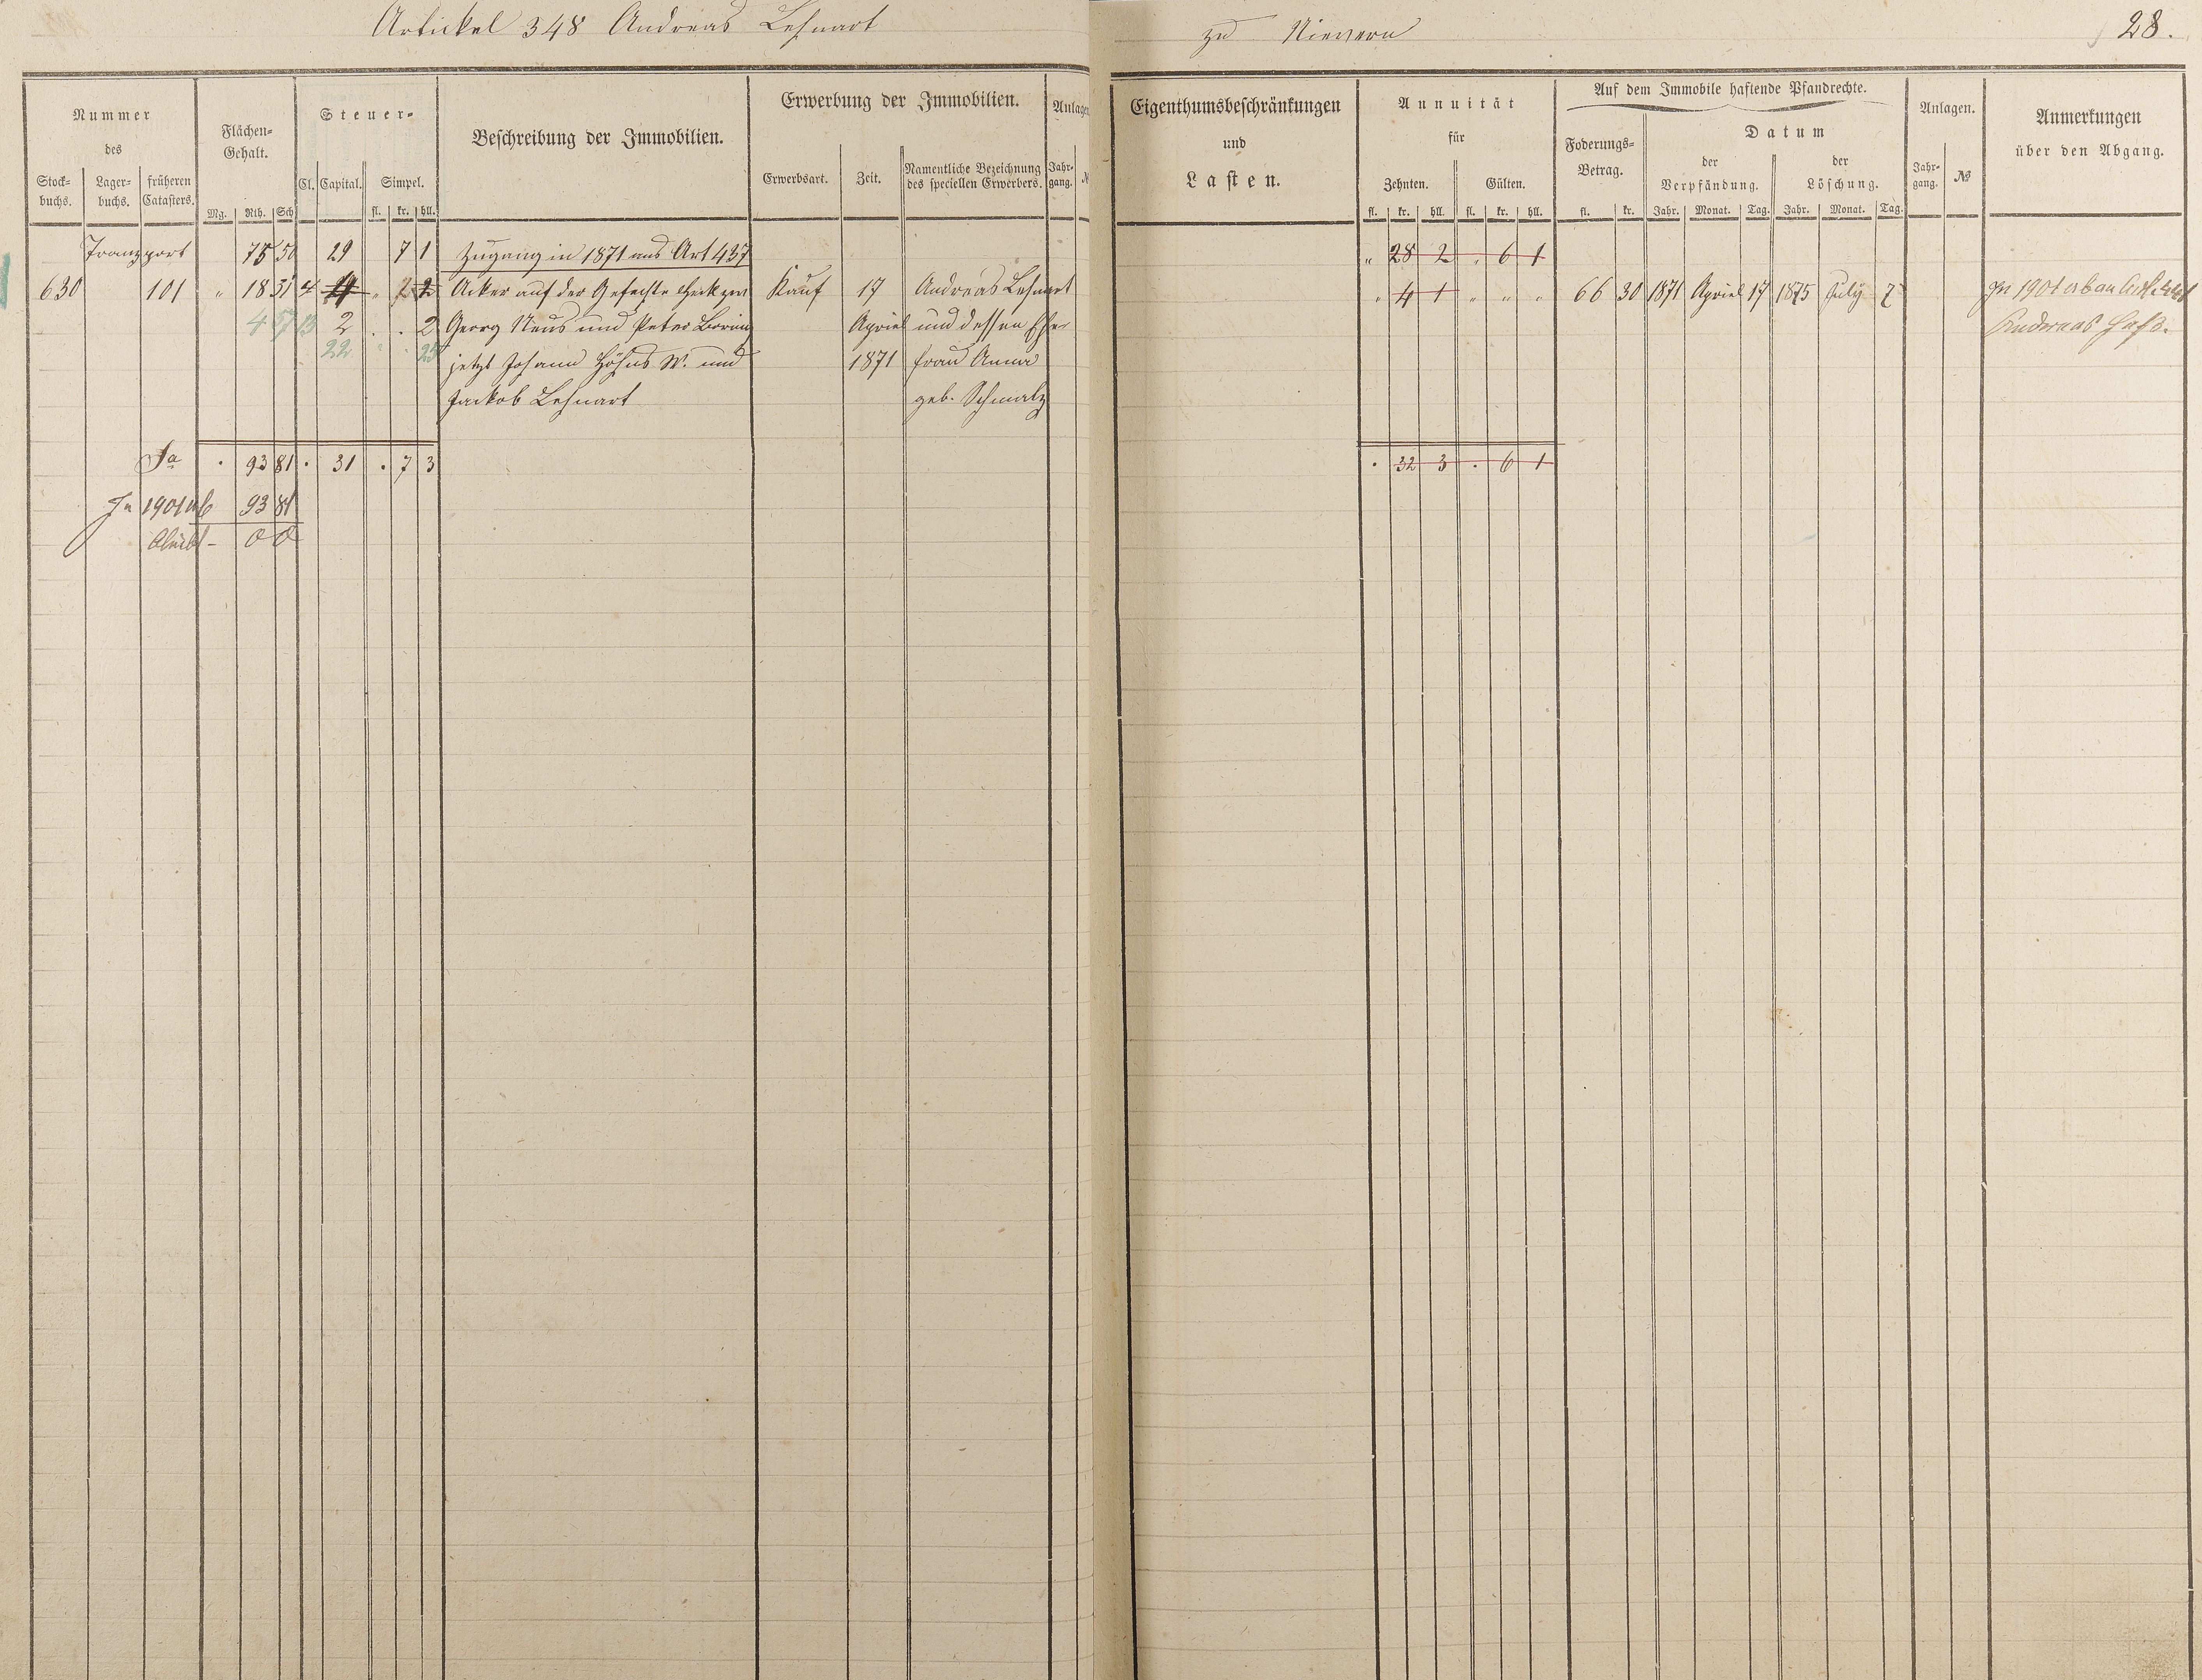 Artickel 348 Andreas Lehnart
zu Nievern
28.
Nummer
des
Stock-
buchs.
Lager-
buchs.
früheren
Catasters.
Flächen-
Gehalt.
Mg. Rth. Sch
Steuer-
Cl. Capital. Simpel.
fl. kr. hll.
Beschreibung der Immobilien.
Erwerbung der Immobilien.
Erwerbsart. Zeit.
Namentliche Bezeichnung
des speciellen Erwerbers.
Anlagen
Jahr-
gang.
Eigenthumsbeschränkungen
und
Lasten.
Annuität
für
Zehnten. Gülten.
fl. kr. hll. fl. kr. hll.
Auf dem Immobile haftende Pfandrechte.
Foderungs-
Betrag.
fl. kr.
Datum
der
Verpfändung.
Jahr. Monat. Tag.
der
Löschung.
Jahr. Monat. Tag.
Anlagen.
Jahr-
gang.
№
Anmerkungen
über den Abgang.
Transport 75 50 29 7 1 Zugang in 1871 aus Art 437 " 28 2 . 6 1
630 101 " 18 31 4 4 " 2 2 Acker auf der Gefechte Kauf 17 Andreas Lehnart " 4 1 " " " 66 30 1871 Apriel 17 1875 July 7 In 1901 ab an
2 . . 2 Georg Neus und Peter Apriel und dessen Ehe-
22 jetzt Johann Höhns W. und 1871 frau Anna
Jackob Lehnart geb. Schmalz
Sa . 93 81 . 31 . 7 3 . 32 3 . 6 1
In 1901 ab 93 81
bleibt - 0 0